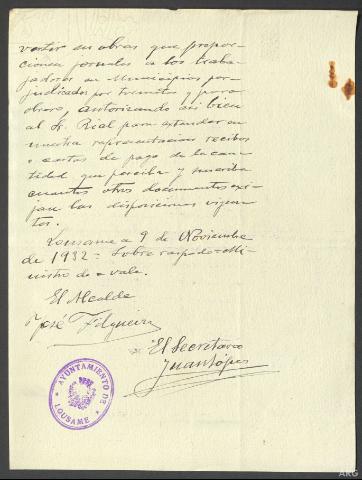 vertir en obras que propor-
cionen jornales a los traba-
jadores en Municipios per-
judicados por tremites y paro
obrero, autorizando asi bien
al Sr. Rial para extender en
nuestra representacion recibos
o cartas de pago de la can-
tidad que perciba y suscriba
cuantos otros documentos exi-
jan las disposiciones vigen-
tes.
Lousame a 9 de Noviembre
de 1932 = Sobre raspado = Mi-
nistro de = vale.
El Alcalde
José Filgueira
El Secretario
Juan López
AYUNTAMIENTO DE
LOUSAME
ARG